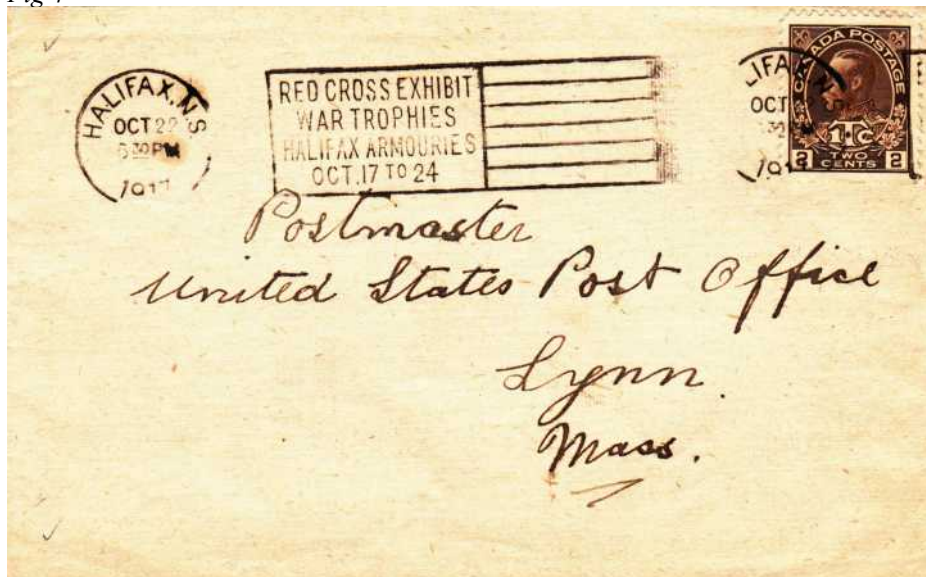 HALIFAX, N S
OCT 22
6 30 PM
191
RED CROSS EXHIBIT
WAR TROPHIES
HALIFAX ARMOURIES
OCT. 17 TO 24
LIFAX, N S
OCT
30
191
CANADA POSTAGE
1TC
2 TWO CENTS 2
Postmaster
United States Post Office
Lynn.
Mass.